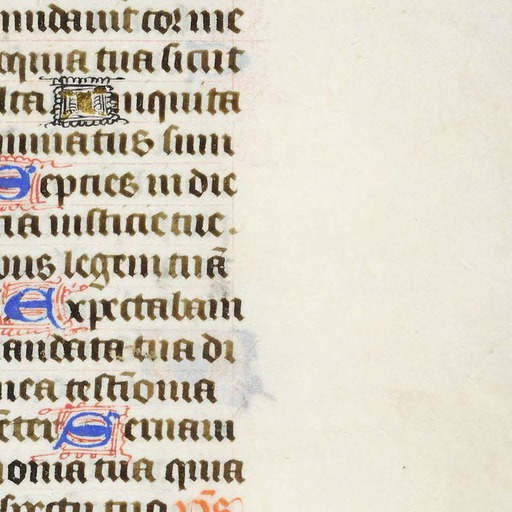 midauit cor me
oquia tua sicut
lta Iniquita
ominatus sum
Septies in die
ia iusticie tue.
ous legem tuā
Expectabam
andata tua di
mea testīonia
ēter Seruaui
onia tua quia
spectu tuo ps